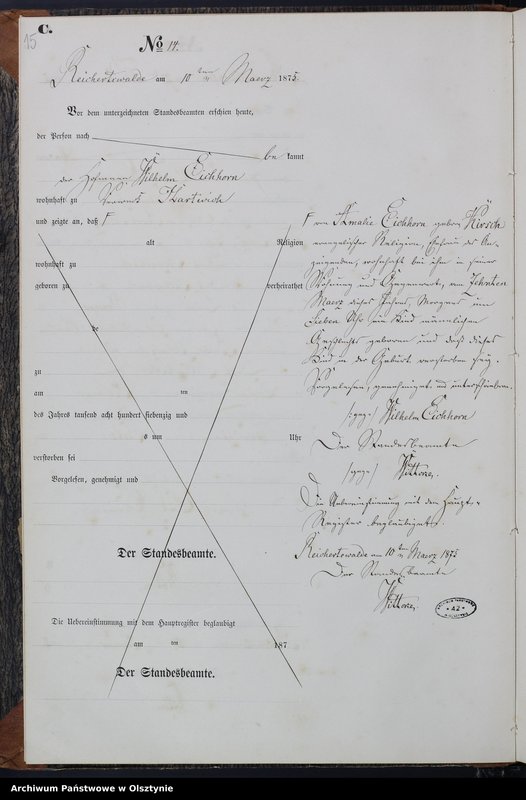 C.
15
No 14.
Reichertswalde am 10 ten Maerz 1875.
Vor dem unterzeichneten Standesbeamten erschien heute,
der Person nach
be kannt
der Hofmann Wilhelm Eichhorn
wohnhaft zu Vorwerk Hartwich
und zeigte an, daß
alt Religion
wohnhaft zu
geboren zu verheirathet
de
zu
am ten
des Jahres tausend acht hundert siebenzig und
s um Uhr
verstorben sei
Vorgelesen, genehmigt und
Der Standesbeamte.
Die Uebereinstimmung mit dem Hauptregister beglaubigt
am ten 187
Der Standesbeamte.
von Amalie Eichhorn geborn Kirsch
evangelischer Religion, Ehefrau des An-
zeigenden, wohnhaft bei ihm in seiner
Wohnung und Gegenwart, am Zehnten
Maerz dieses Jahres, Morgens um
Sieben Uhr ein Kind männlichen
Geschlechts geboren und daß dieses
Kind in der Geburt verstorben sey.
Vorgelesen, genehmigt und unterschrieben.
/:gez:/ Wilhelm Eichhorn
Der Standesbeamte
/:gez:/ Wittke.
Die Uebereinstimmung mit dem Haupt-
Register beglaubigt.
Reichertswalde am 10 ten Maerz 1875
Der Standesbeamte
Wittke.
42
Archiwum Państwowe w Olsztynie